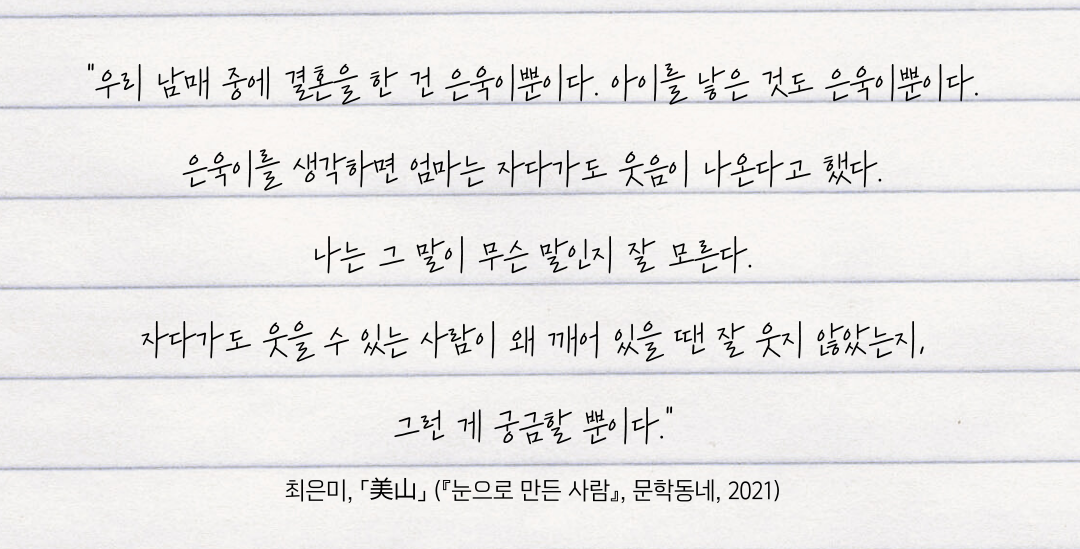 "우리 남매 중에 결혼을 한 건 은욱이뿐이다. 아이를 낳은 것도 은욱이뿐이다.
은욱이를 생각하면 엄마는 자다가도 웃음이 나온다고 했다.
나는 그 말이 무슨 말인지 잘 모른다.
자다가도 웃을 수 있는 사람이 왜 깨어 있을 땐 잘 웃지 않았는지,
그런 게 궁금할 뿐이다."
최은미, 「美山」 (『눈으로 만든 사람』, 문학동네, 2021)